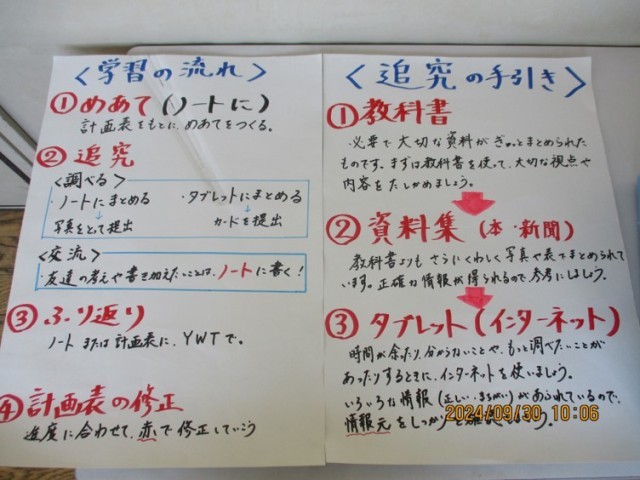 ＜学習の流れ＞
①めあて(ノートに)
計画表をもとに、めあてをつくる。
②追究
＜調べる＞
・ノートにまとめる
写真をとって提出
・タブレットにまとめる
カードを提出
＜交流＞
・友達の考えや書き加えたいことは、ノートに書く!
③ふり返り
ノートまたは計画表に、YWTで。
④計画表の修正
進度に合わせて、赤で修正していこう
＜追究の手引き＞
①教科書
・必要で大切な資料がぎゅっとまとめられた
ものです。まずは教科書を使って、大切な視点や
内容をたしかめましょう。
②資料集(本・新聞)
教科書よりもさらにくわしく写真や表でまとめられて
います。正確な情報が得られるので、参考にしよう。
③タブレット(インターネット)
時間が余ったり、分からないことや、もっと調べたいことが
あったりするときに、インターネットを使いましょう。
いろいろな情報(正しい・まちがい)があふれているので、
情報元をしっかりと確認しましょう。
2024/09/30 10:06